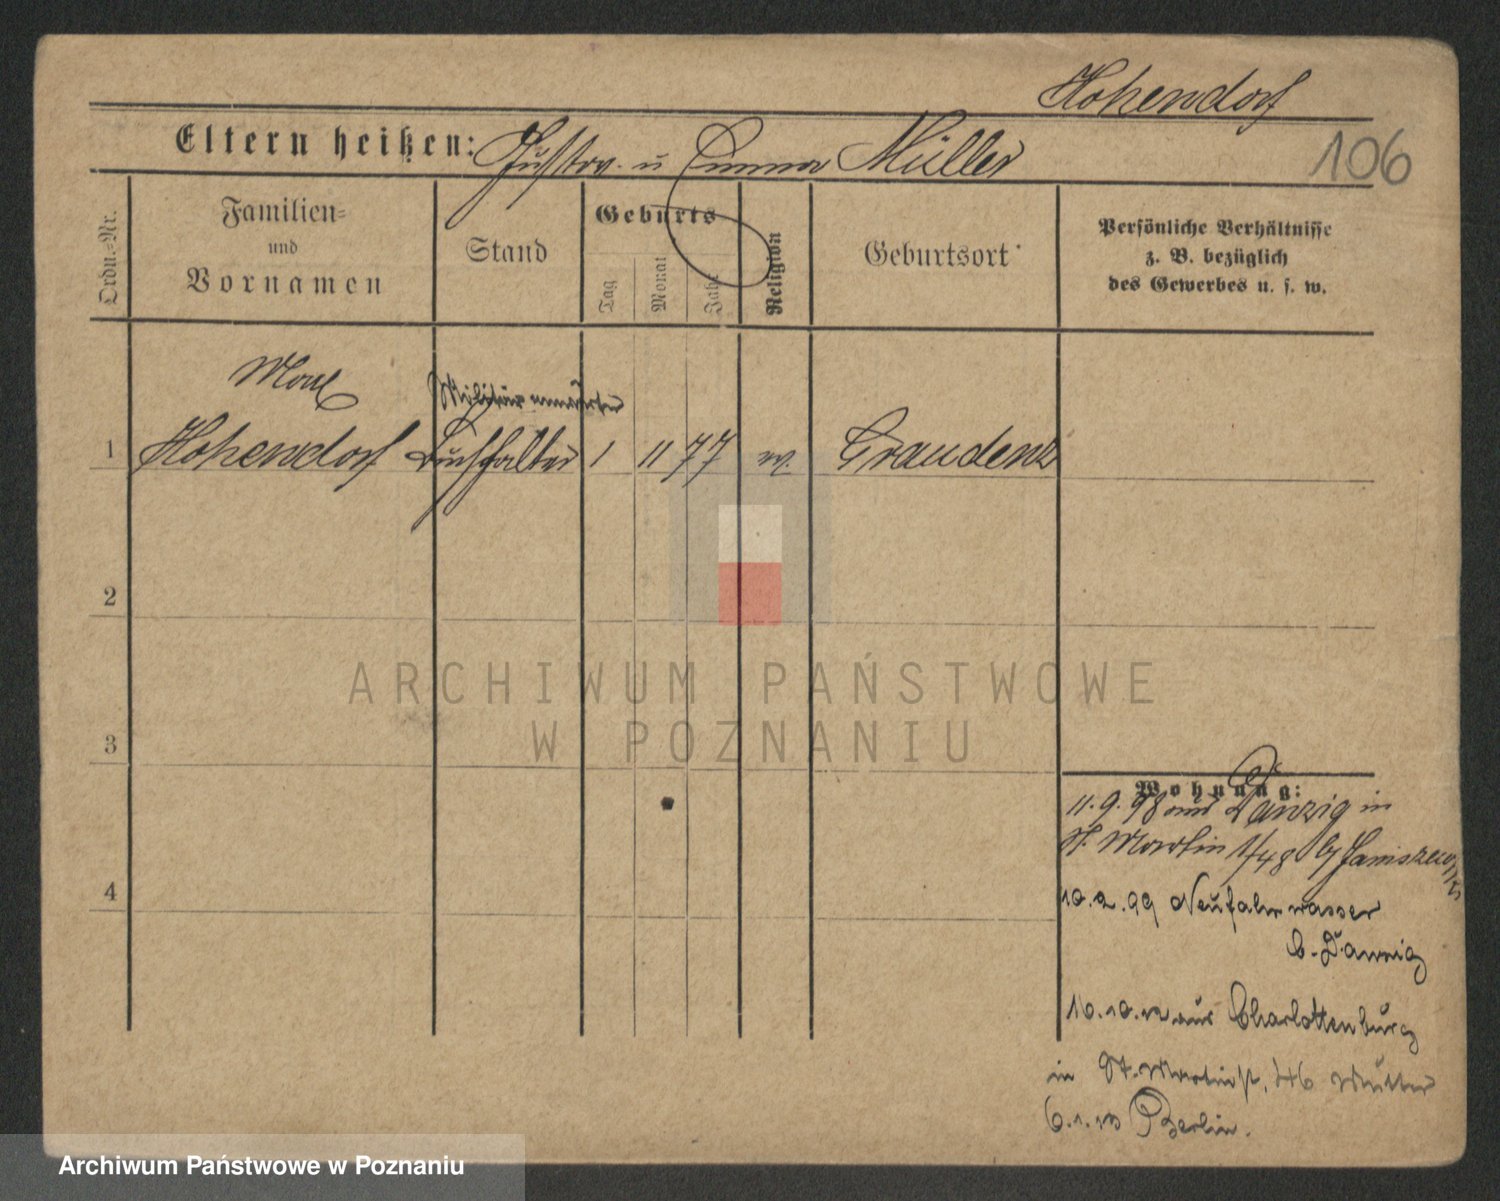 Hohendorf
106
Eltern heißen: Gustav u Emma Müller
Ordn.=Nr.
Familien=
und
Vornamen
Stand
Geburts
Tag
Monat
Jahr
Religion
Geburtsort
Persönliche Verhältnisse
z. B. bezüglich
des Gewerbes u. s. w.
Militäranwärter
1 Hohendorf Buchhalter 1 11 77 Graudenz
2
3
4
Wohnung:
11.9.98 aus Danzig in
St. Martin 1/48 by Janiszewski
10.2.99 Neufahrwasser
b. Danzig
16.10.12 aus Charlottenburg
in St. Martinst. 46 Mutter
6.1.13 Berlin.
ARCHIWUM PAŃSTWOWE
W POZNANIU
Archiwum Państwowe w Poznaniu